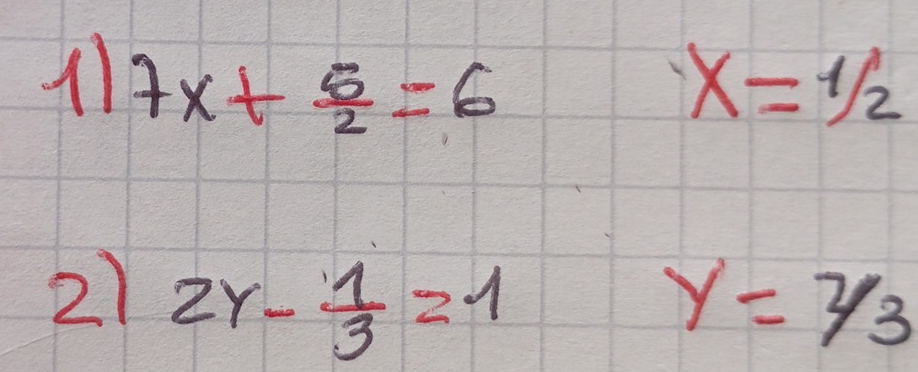 1) 7x + 5/2 = 6 X = 1/2
2) 2y - 1/3 = 1 y = 2/3